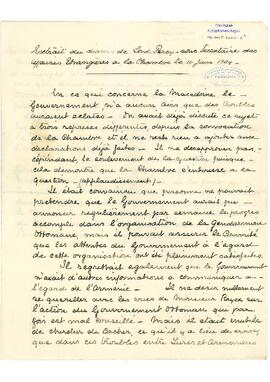 Extrait du discours de Lord Percy - sous Secrétaire des
Affaires Etrangères à la Chambre le 10 Juin 1904 -
En ce qui concerne la Macédoine le
Gouvernement n'a aucun avis que des troubles
auraient éclatés - On avait déjà discuté ce sujet
à trois reprises différentes, depuis la convocation
de la Chambre et il ne reste rien à ajouter aux
déclarations déjà faites - Il ne désapprouve pas
cependant, le soulèvement de la question puisque
cela démontre que la Chambre s'intéresse à la
question - (applaudissement) -
Il était convaincu que personne ne pouvait
prétendre que le Gouvernement aurait pu
annoncer régulièrement par semaine le progrès
accompli dans l'organisation de la Gendarmerie
Ottomane, mais il pouvait assurer la
que les attentes du Gouvernement à l'égard
de cette organisation ont été pleinement satisfaites.
Il regrettait également que le Gouvernement
n'avait d'autres informations à communiquer à
l'égard de l'Arménie - Il ne désire nullement
se quereller avec les vues de Monsieur sur
l'action du Gouvernement Ottoman qui par
fois est mal conseillé - Mais il était inutile
de chercher de cacher, ce qu'il y a lieu de croire,
que dans ces troubles entre Kurdes et Arméniens